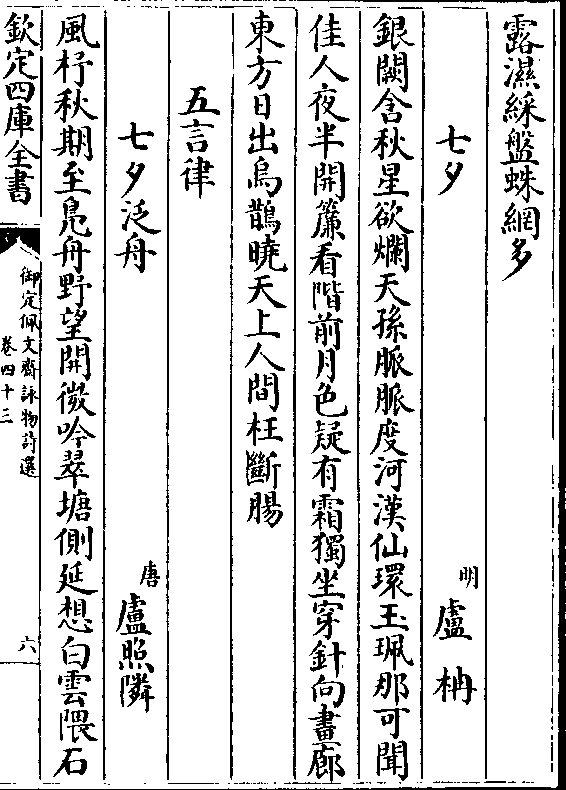 露濕綵盤蛛網多
七夕 明 盧柟
銀闕含秋星欲爛天孫脈脈度河漢仙環玉珮那可聞
佳人夜半開簾看階前月色疑有霜獨坐穿針向畫廊
東方日出烏鵲曉天上人間枉斷腸
五言律
七夕泛舟 唐 盧照隣
風杼秋期至鳧舟野望開微吟翠塘側延想白雲隈石
欽定四庫全書
御定佩文齋詠物詩選
卷四十三
六